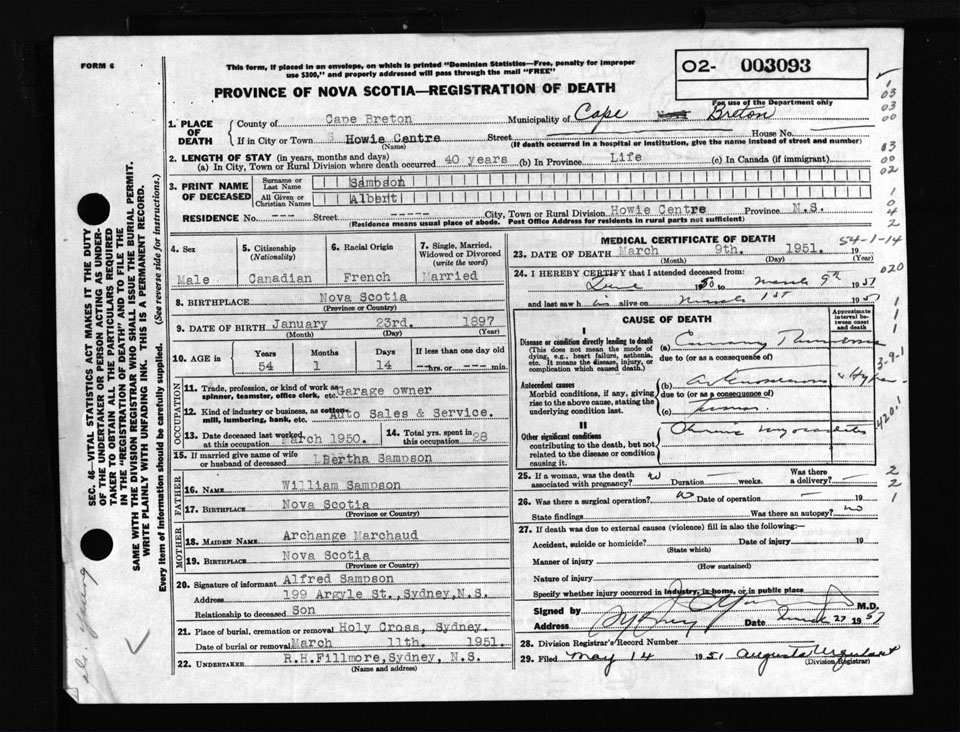 FORM 6
This form, if placed in an envelope, on which is printed "Dominion Statistics—Free, penalty for improper
use $300," and properly addressed will pass through the mail "FREE"
02- 003093
For use of the Department only
PROVINCE OF NOVA SCOTIA—REGISTRATION OF DEATH
1. PLACE OF DEATH
County of Cape Breton Municipality of Cape Breton
If in City or Town S Howie Centre Street House No.
(Name) (If death occurred in a hospital or institution, give the name instead of street and number)
2. LENGTH OF STAY (in years, months and days)
(a) In City, Town or Rural Division where death occurred 40 years (b) In Province Life (c) In Canada (if immigrant)
3. PRINT NAME OF DECEASED
Surname or Last Name Sampson
All Given or Christian Names Albert
RESIDENCE No. --- Street ----- City, Town or Rural Division Howie Centre Province N.S.
(Residence means usual place of abode. Post Office Address for residents in rural parts not sufficient)
4. Sex Male
5. Citizenship (Nationality) Canadian
6. Racial Origin French
7. Single, Married, Widowed or Divorced (write the word) Married
8. BIRTHPLACE Nova Scotia
(Province or Country)
9. DATE OF BIRTH January 23rd. 1897
(Month) (Day) (Year)
10. AGE in Years 54 Months 1 Days 14 If less than one day old --hrs. or --- min.
OCCUPATION
11. Trade, profession, or kind of work as spinner, teamster, office clerk, etc. Garage owner
12. Kind of industry or business, as cotton mill, lumbering, bank, etc. Auto Sales & Service.
13. Date deceased last worked at this occupation March 1950.
14. Total yrs. spent in this occupation 28
15. If married give name of wife or husband of deceased Bertha Sampson
FATHER
16. NAME William Sampson
17. BIRTHPLACE Nova Scotia
(Province or Country)
MOTHER
18. MAIDEN NAME Archange Marchaud
19. BIRTHPLACE Nova Scotia
(Province or Country)
20. Signature of informant Alfred Sampson
Address 199 Argyle St.,Sydney,N.S.
Relationship to deceased Son
21. Place of burial, cremation or removal Holy Cross, Sydney.
Date of burial or removal March 11th. 1951.
22. UNDERTAKER R.H.Fillmore,Sydney, N.S.
(Name and address)
MEDICAL CERTIFICATE OF DEATH
54-1-14
23. DATE OF DEATH March 9th. 1951. 19
(Month) (Day) (Year)
24. I HEREBY CERTIFY that I attended deceased from:
1950 to March 9th 1951
and last saw him alive on March 1st 1951
CAUSE OF DEATH
Approximate interval between onset and death
I
Disease or condition directly leading to death
(This does not mean the mode of dying, e.g., heart failure, asthenia, etc. It means the disease, injury, or complication which caused death.)
(a) Coronary Thrombosis
due to (or as a consequence of)
Antecedent causes
Morbid conditions, if any, giving rise to the above cause, stating the underlying condition last.
(b)
due to (or as a consequence of)
(c)
II
Other significant conditions
contributing to the death, but not related to the disease or condition causing it.
Chronic myocarditis
25. If a woman, was the death associated with pregnancy? Duration weeks. Was there a delivery?
26. Was there a surgical operation? No Date of operation —
State findings Was there an autopsy? No
27. If death was due to external causes (violence) fill in also the following:—
Accident, suicide or homicide? Date of injury 19
(State which)
Manner of injury
(How sustained)
Nature of injury
Specify whether injury occurred in industry, in home, or in public place
Signed by M.D.
Address Sydney Date March 27 1951
28. Division Registrar's Record Number
29. Filed May 14 1951 Augusta Urquhart
(Division Registrar)
SEC. 46—VITAL STATISTICS ACT MAKES IT THE DUTY
OF THE UNDERTAKER OR PERSON ACTING AS UNDER-
TAKER TO OBTAIN ALL THE PARTICULARS REQUIRED
IN THE "REGISTRATION OF DEATH" AND TO FILE THE
SAME WITH THE DIVISION REGISTRAR WHO SHALL ISSUE THE BURIAL PERMIT.
WRITE PLAINLY WITH UNFADING INK. THIS IS A PERMANENT RECORD.
Every item of Information should be carefully supplied. (See reverse side for instructions.)
1
03
03
00
03
00
02
1
0
4
2
020
1
1
1
3-9-1
420.1
2
2
1